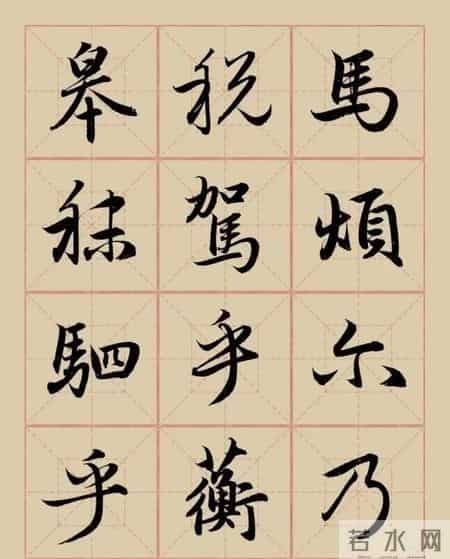 馬煩尓乃
税駕乎蘅
皋秣駟乎
若水网